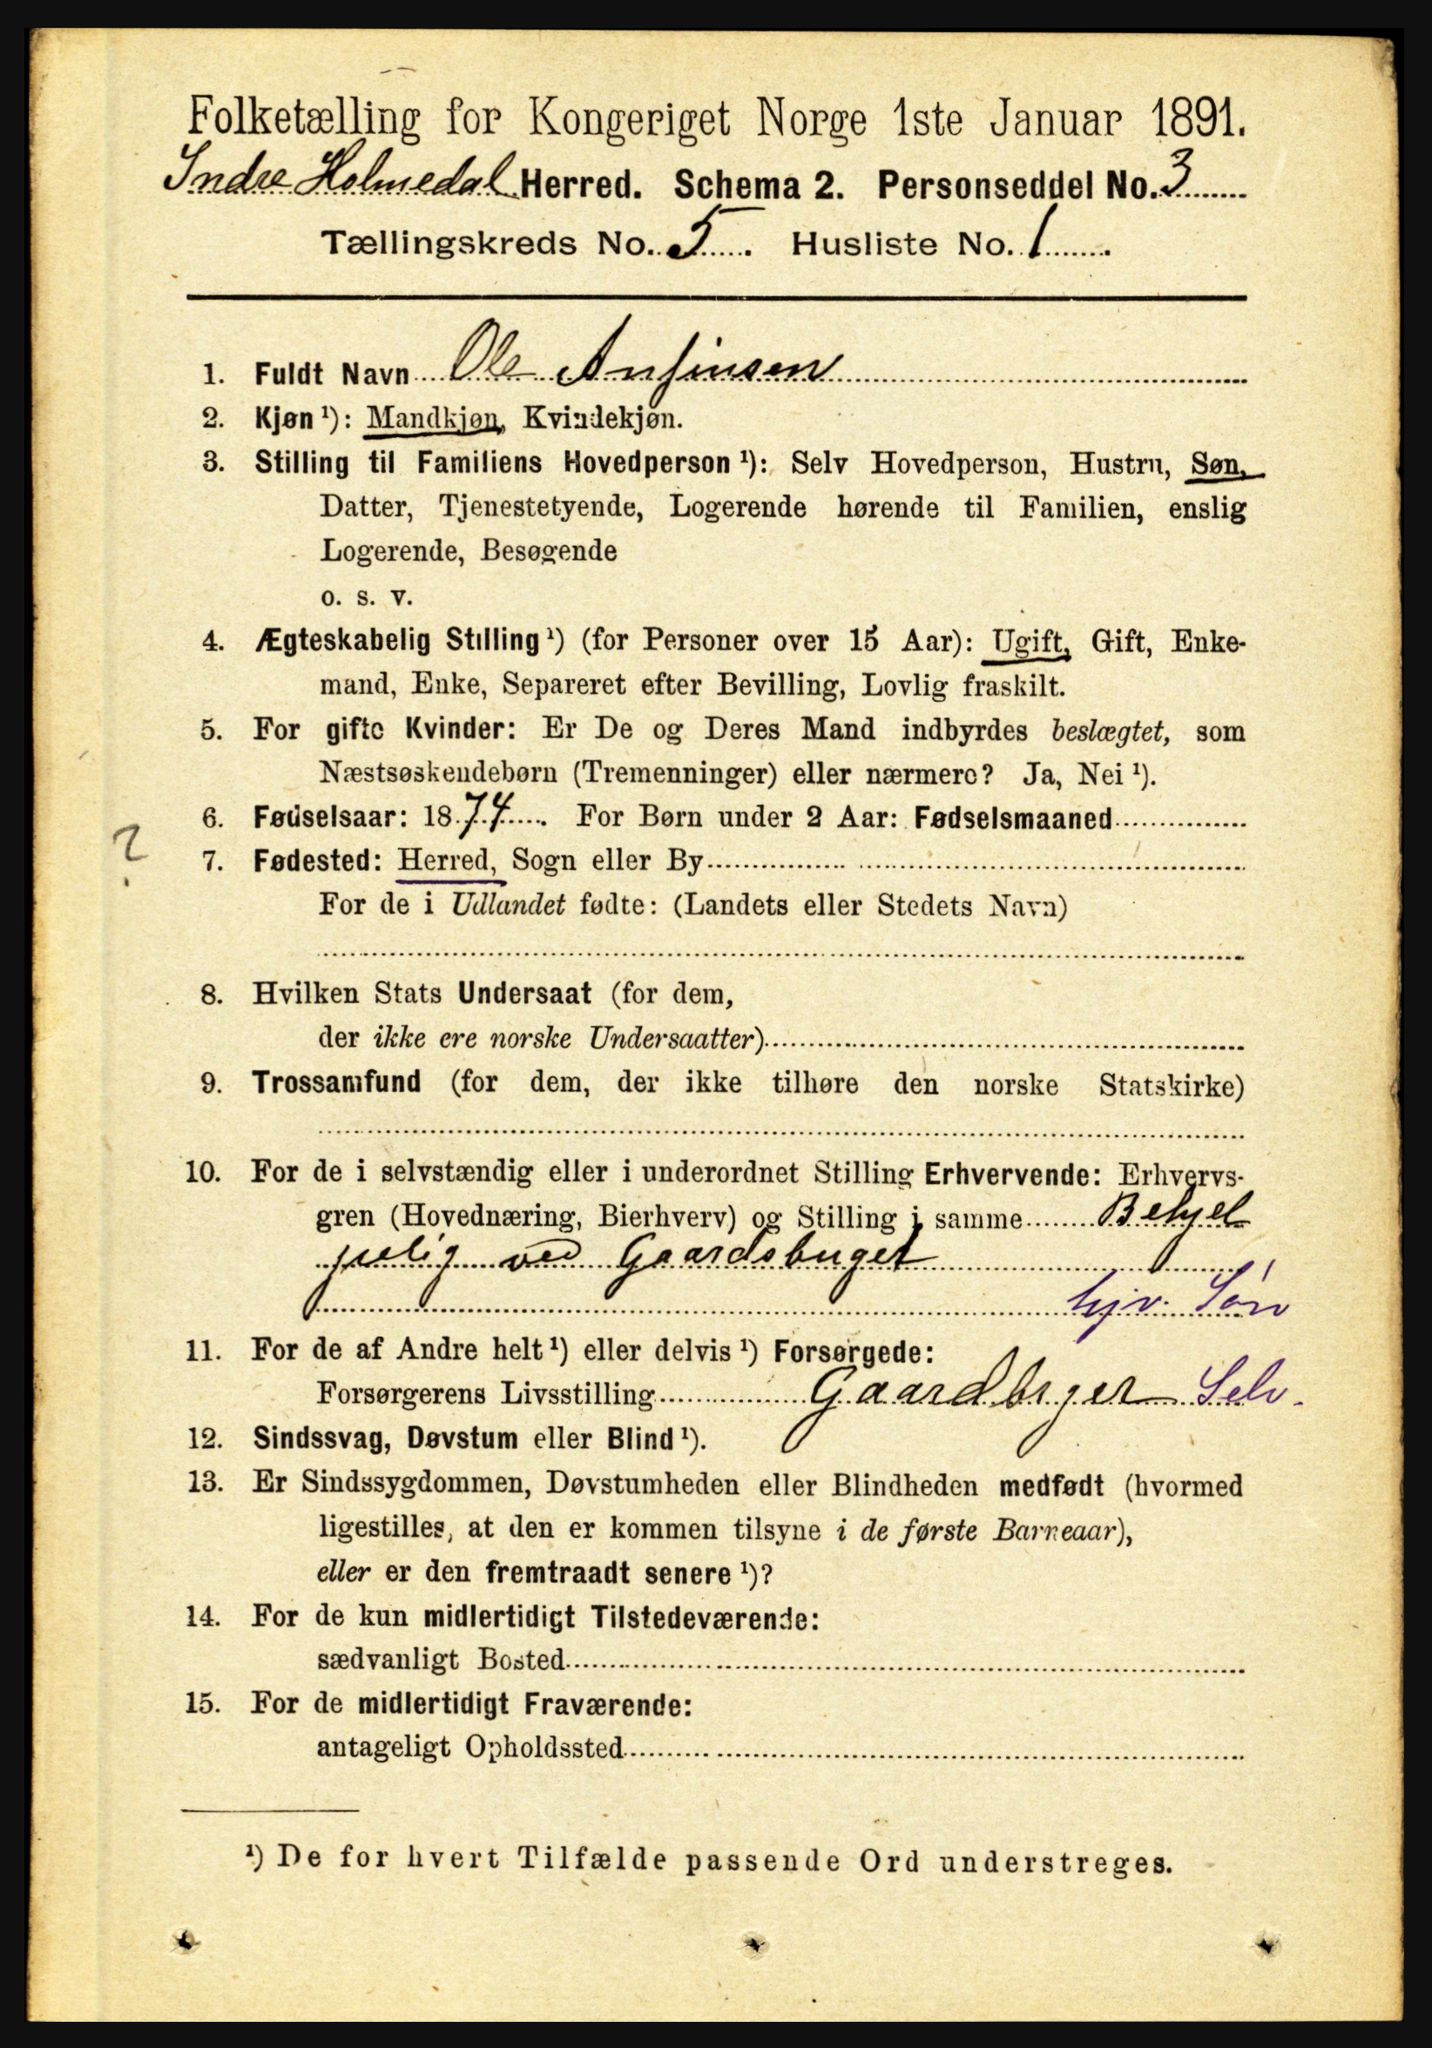 Folketælling for Kongeriget Norge 1ste Januar 1891.
Indre Holmedal Herred. Schema 2. Personseddel No. 3
Tællingskreds No. 5. Husliste No. 1.
1. Fuldt Navn Ole Anfinsen
2. Kjøn ¹): Mandkjøn, Kvindekjøn.
3. Stilling til Familiens Hovedperson ¹): Selv Hovedperson, Hustru, Søn,
Datter, Tjenestetyende, Logerende hørende til Familien, enslig
Logerende, Besøgende
o. s. v.
4. Ægteskabelig Stilling ¹) (for Personer over 15 Aar): Ugift, Gift, Enke-
mand, Enke, Separeret efter Bevilling, Lovlig fraskilt.
5. For gifte Kvinder: Er De og Deres Mand indbyrdes beslægtet, som
Næstsøskendebørn (Tremenninger) eller nærmere? Ja, Nei ¹).
6. Fødselsaar: 1874. For Børn under 2 Aar: Fødselsmaaned
?
7. Fødested: Herred, Sogn eller By
For de i Udlandet fødte: (Landets eller Stedets Navn)
8. Hvilken Stats Undersaat (for dem,
der ikke ere norske Undersaatter)
9. Trossamfund (for dem, der ikke tilhøre den norske Statskirke)
10. For de i selvstændig eller i underordnet Stilling Erhvervende: Erhvervs-
gren (Hovednæring, Bierhverv) og Stilling i samme Behjel
pelig ved Gaardsbuget
hjv. Søn
11. For de af Andre helt ¹) eller delvis ¹) Forsørgede:
Forsørgerens Livsstilling Gaardbrger Selv.
12. Sindssvag, Døvstum eller Blind ¹).
13. Er Sindssygdommen, Døvstumheden eller Blindheden medfødt (hvormed
ligestilles, at den er kommen tilsyne i de første Barneaar),
eller er den fremtraadt senere ¹)?
14. For de kun midlertidigt Tilstedeværende:
sædvanligt Bosted
15. For de midlertidigt Fraværende:
antageligt Opholdssted
¹) De for hvert Tilfælde passende Ord understreges.